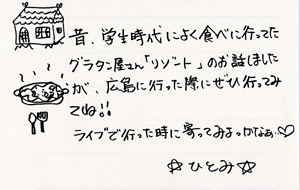 昔、学生時代によく食べに行ってた
グラタン屋さん「リゾート」のお話しました
が、広島に行った際にぜひ行ってみ
てね!!
ライブで行った時に寄ってみよっかなぁ〜♡
☆ひとみ☆